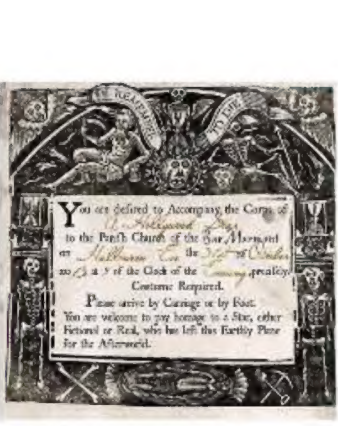 REMEMBER
TO DIE
You are desired to Accompany the Corps of
A Hollywood Star
to the Parish Church of the Bar Marmont
on Halloween Eve the of October
at of the Clock of the Evening precisely.
Costume Required.
Please arrive by Carriage or by Foot.
You are welcome to pay homage to a Star, either
Fictional or Real, who has left this Earthly Plane
for the Afterworld.